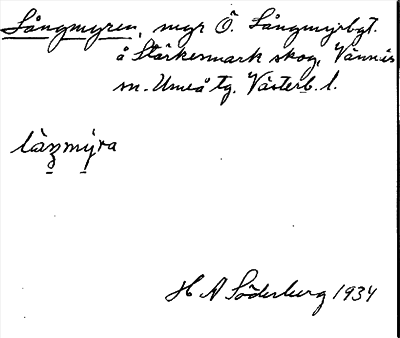 Långmyren, myr Ö. Långmyrbgt.
å Stärkesmark skog, Vännäs
sn. Umeå tg. Västerb. l.
làŋmýra
H A Söderberg 1934